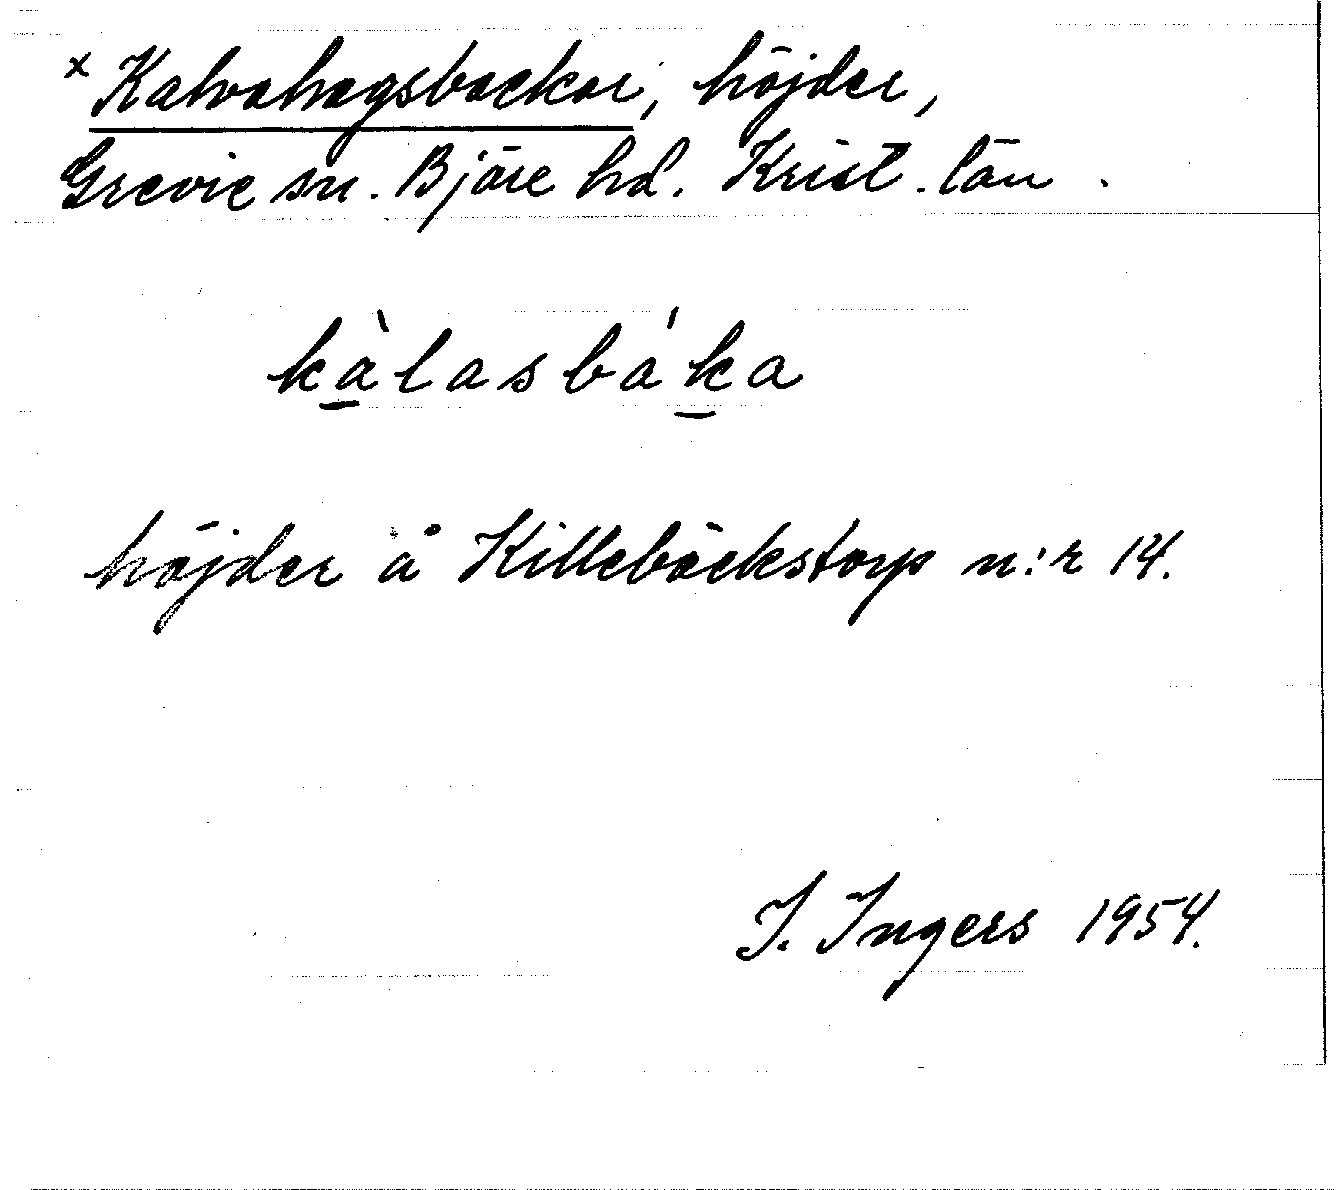 x Kalvahagsbackar, höjder,
Grevie sn. Bjäre hd. Krist. län.
kàlasbáka
höjder å Killebäckstorp n:r 14.
I. Ingers 1954.